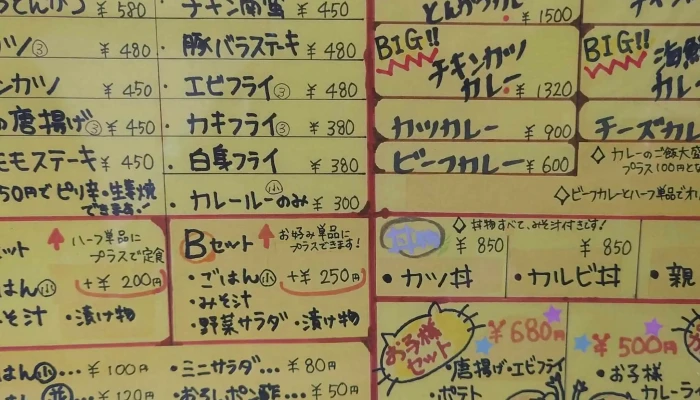 ¥580
チキン南蛮 ¥450
¥1500
カツ③ ¥480
豚バラステーキ ¥480
BIG!!
チキンカツ
カレー ¥1320
BIG!!
海鮮
カレ
ンカツ ¥450
エビフライ③ ¥480
の唐揚げ③ ¥450
カキフライ③ ¥380
カツカレー ¥900
チーズカレ
モモステーキ ¥450
白身フライ ¥380
ビーフカレー ¥600
◇カレーのご飯大盛
プラス100円とな
50円でピリ辛・生姜焼
できます!
カレールーのみ㊙小 ¥300
◇ビーフカレーとハーフ単品でオ
セット
ハーフ単品に
プラスで定食
+¥200円
はん小
そ汁 ・漬け物
Bセット
お好み単品に
プラスできます!
・ごはん小 +¥250円
・みそ汁
・野菜サラダ ・漬け物
丼物
◇丼物すべて、みそ汁付きです!
¥850
・カツ丼
¥850
・カルビ丼
・親
はん小… ¥100円
・ミニサラダ… ¥80円
¥120円
・おろしポン酢… ¥50円
お子様
セット
¥680円
・唐揚げ・エビフライ
・ポテト
¥500円
・お子様
カレーライ